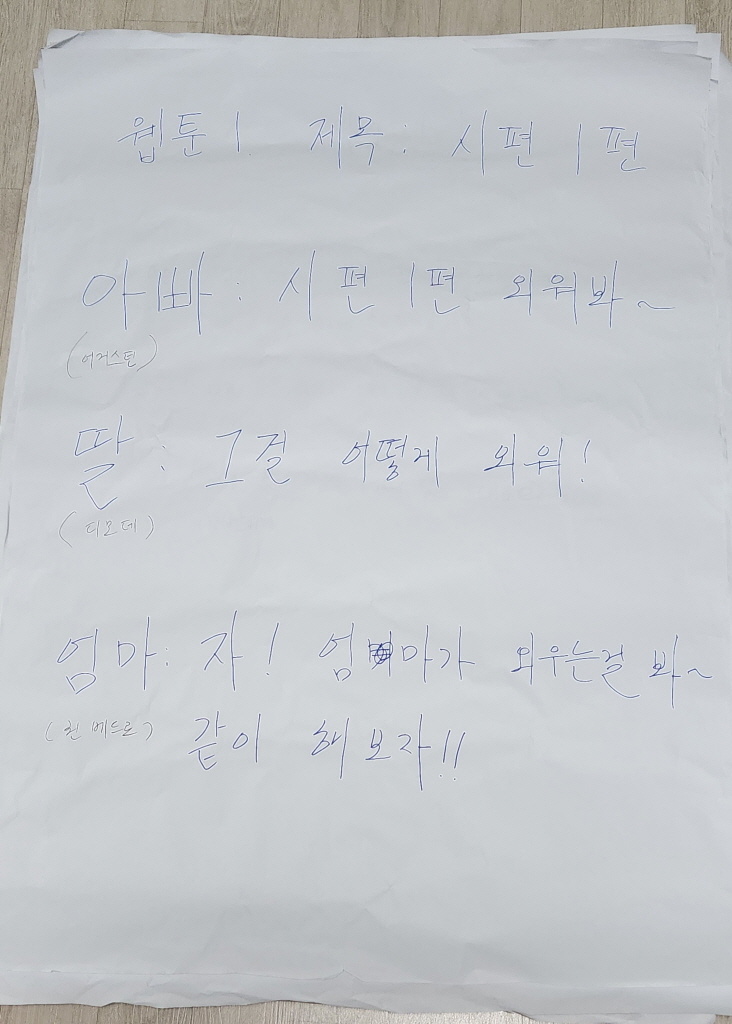 웹툰 1. 제목: 시편 1편
아빠: 시편 1편 외워봐~
(어거스틴)
딸: 그걸 어떻게 외워!
(디모데)
엄마: 자! 엄마가 외우는걸 봐~
(진 베드로)
같이 해보자!!